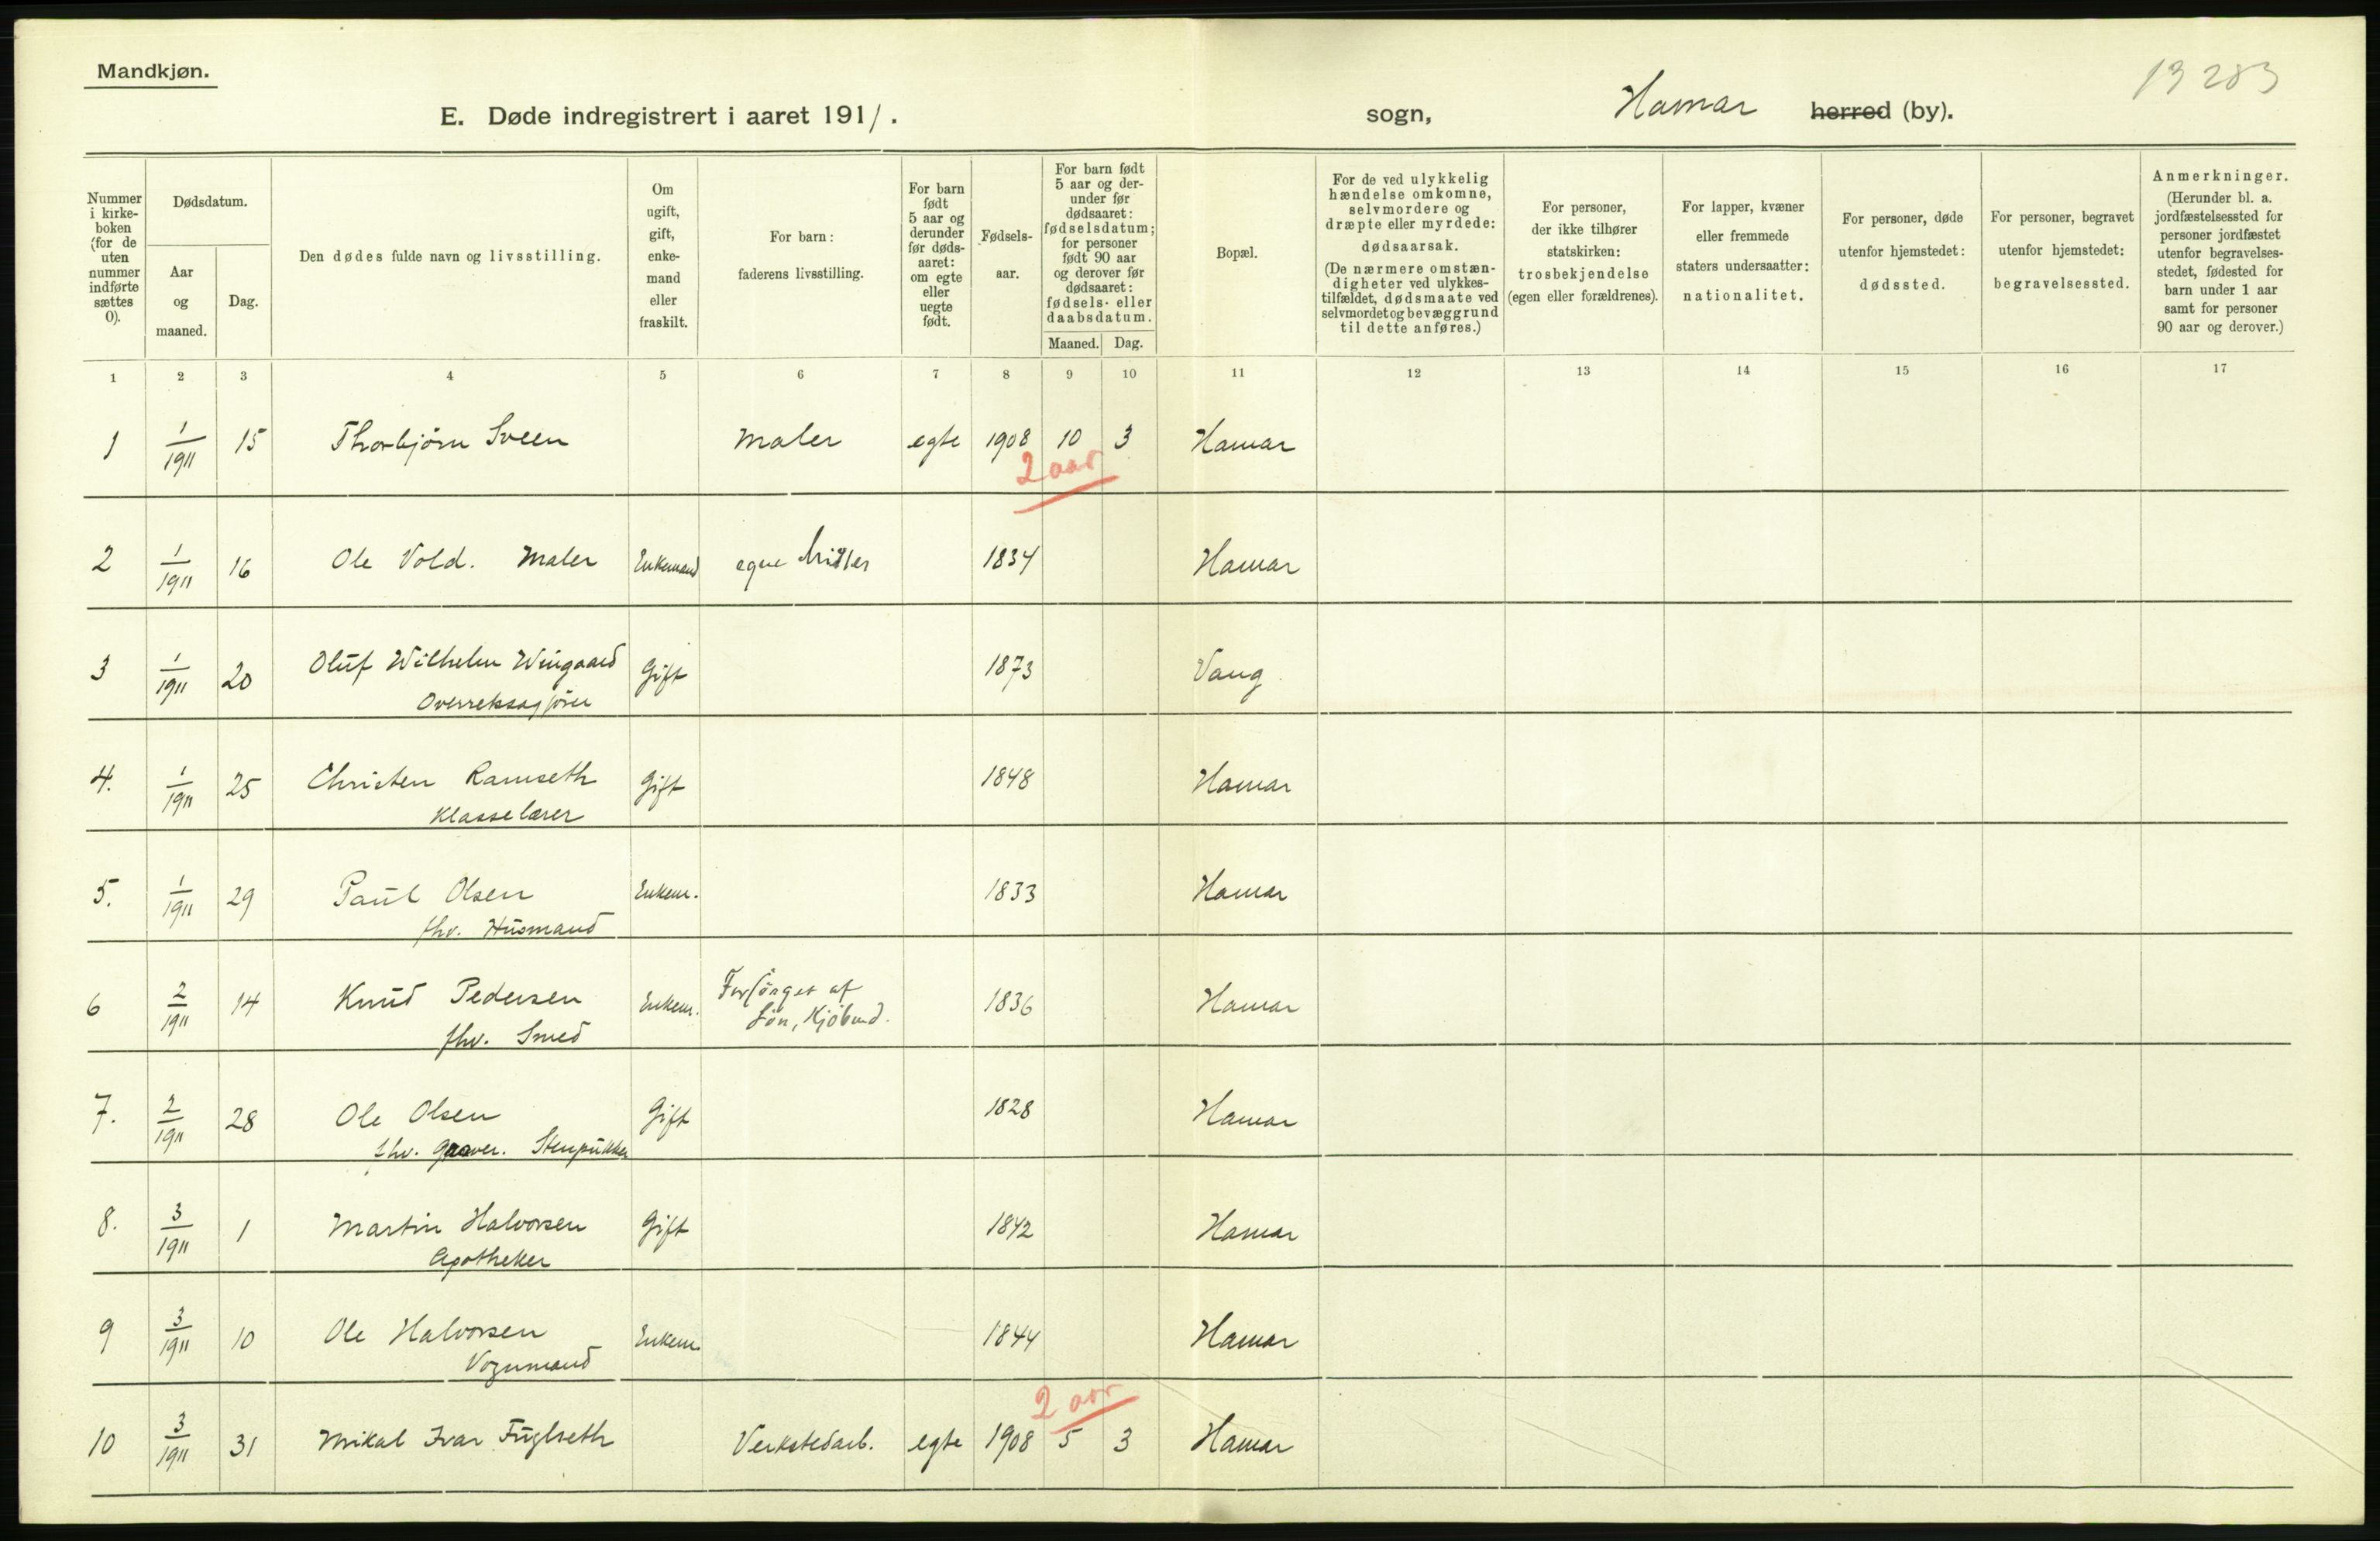 Mandkjøn.
13 283
E. Døde indregistrert i aaret 1911.
sogn, Hamar herred (by).
Nummer i kirke-boken (for de uten nummer indførte sættes 0).
Dødsdatum.
Aar og maaned.
Dag.
Den dødes fulde navn og livsstilling.
Om ugift, gift, enke-mand eller fraskilt.
For barn: faderens livsstilling.
For barn født 5 aar og derunder før døds-aaret: om egte eller uegte født.
Fødsels-aar.
For barn født 5 aar og der-under før dødsaaret: fødselsdatum; for personer født 90 aar og derover før dødsaaret: fødsels- eller daabsdatum.
Maaned. Dag.
Bopæl.
For de ved ulykkelig hændelse omkomne, selvmordere og dræpte eller myrdede: dødsaarsak. (De nærmere omstæn-digheter ved ulykkes-tilfældet, dødsmaate ved selvmordet og bevæggrund til dette anføres.)
For personer, der ikke tilhører statskirken: trosbekjendelse (egen eller forældrenes).
For lapper, kvæner eller fremmede staters undersaatter: nationalitet.
For personer, døde utenfor hjemstedet: dødssted.
For personer, begravet utenfor hjemstedet: begravelsessted.
Anmerkninger. (Herunder bl. a. jordfæstelsessted for personer jordfæstet utenfor begravelses-stedet, fødested for barn under 1 aar samt for personer 90 aar og derover.)
1 2 3 4 5 6 7 8 9 10 11 12 13 14 15 16 17
1 1/1911 15 Thorbjörn Sveen Maler egte 1908 10 3 Hamar
2 aar
2 1/1911 16 Ole Vold. Maler Enkemand egne Midler 1834 Hamar
3 1/1911 20 Oluf Wilhelm Wiingaard Gift 1873 Vang
Overretssagfører
4. 1/1911 25 Christen Ramseth Gift 1848 Hamar
Klasselærer
5. 1/1911 29 Paul Olsen Enkem. 1833 Hamar
fhv. Husmand
6 2/1911 14 Knud Pedersen Enkem. Forsörget af 1836 Hamar
fhv. Smed Sön, Kjöbmd.
7. 2/1911 28 Ole Olsen Gift 1828 Hamar
fhv. Stenpukker
8. 3/1911 1 Martin Halvorsen Gift 1842 Hamar
Apotheker
9 3/1911 10 Ole Halvorsen Enkem. 1844 Hamar
Vognmand
2 aar
10 3/1911 31 Mikal Ivar Fuglseth Verkstedarb. egte 1908 5 3 Hamar